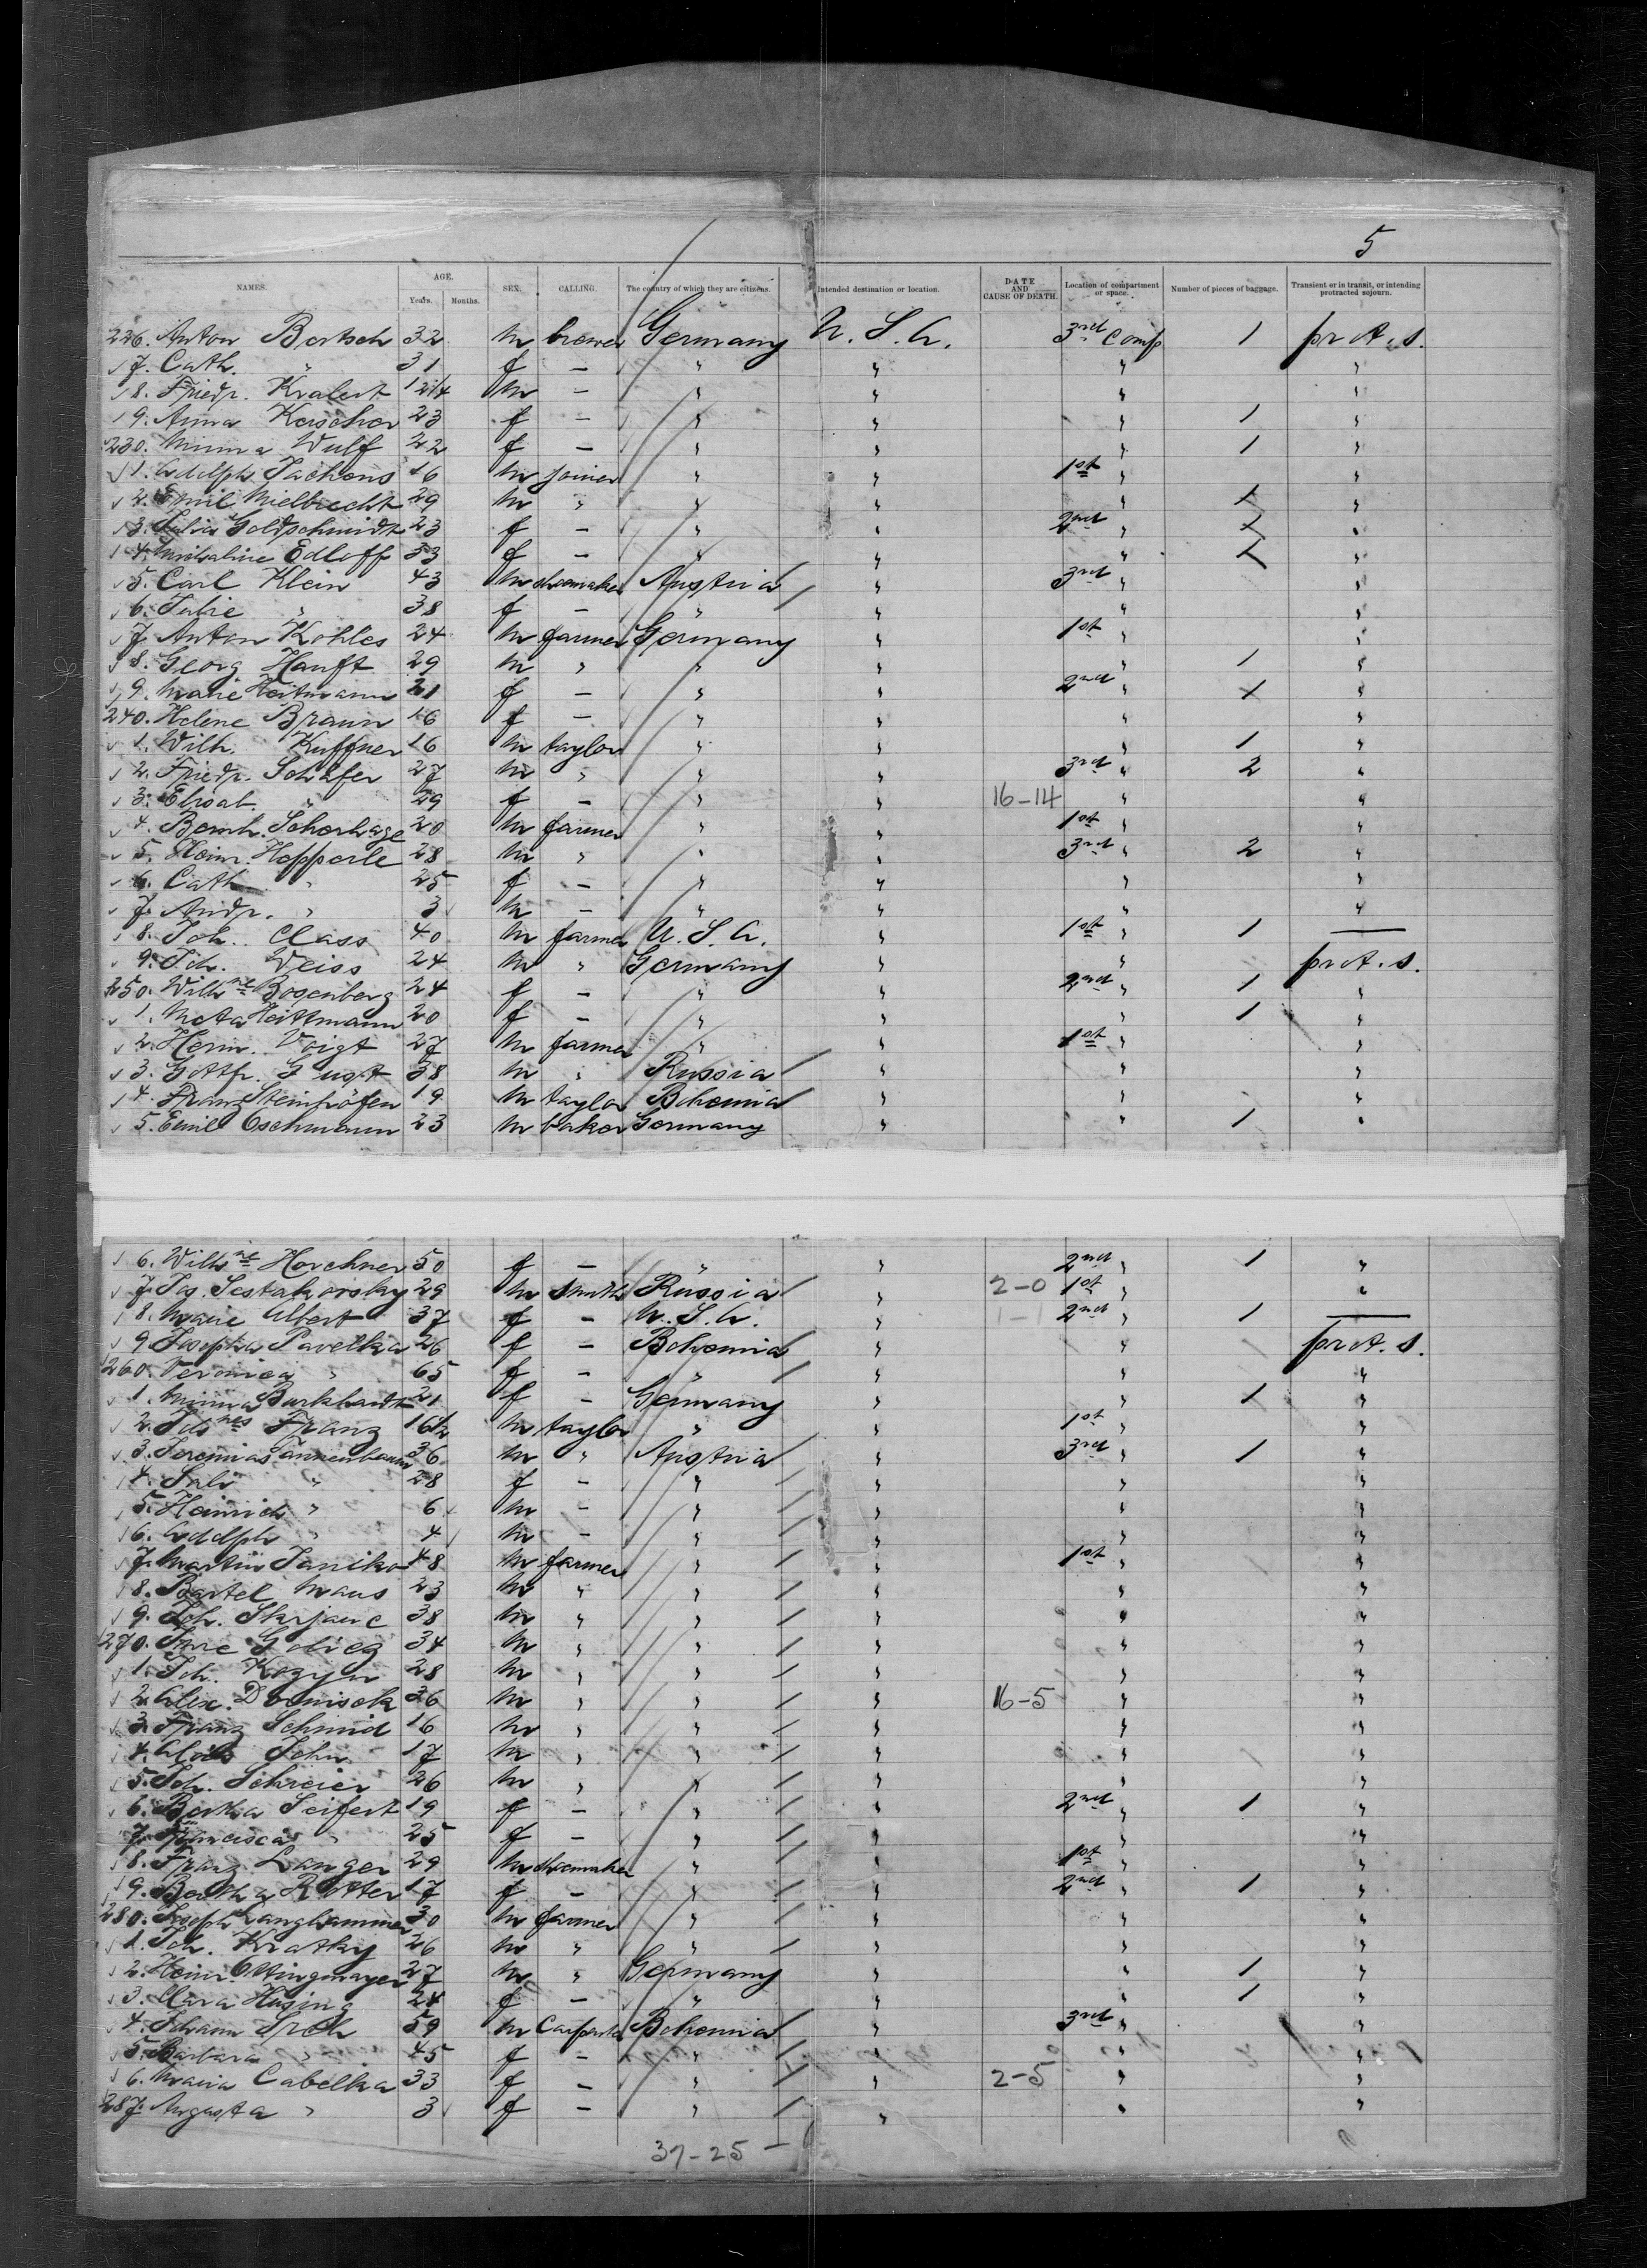 5
NAMES. AGE. Years. Months. SEX. CALLING. The country of which they are citizens. Intended destination or location. DATE AND CAUSE OF DEATH. Location of compartment or space. Number of pieces of baggage. Transient or in transit, or intending protracted sojourn.
226. Anton Bertsch 32 m brewer Germany U.S.A. 3rd Comp 1 prot. s.
7. Cath. " 31 f — " " " "
8. Friedr. Kralert m — " " " "
9. Anna Kerscher 23 f — " " " 1 "
230. Minna Wulf 22 f — " " " 1 "
1. Adolph Jachens 16 m joiner " " 1st " "
2. Emil Mielbrecht 29 m " " " " 1 "
3. Julia Goldschmidt 23 f — " " 2nd " 1 "
4. Edloff 33 f — " " " 1 "
5. Carl Klein 43 m shoemaker Austria " 3rd " "
6. Julie " 38 f — " " " "
7. Anton Kohles 24 m farmer Germany " 1st " "
8. Georg Hanft 29 m " " " " 1 "
9. Marie Heitmann 21 f — " " 2nd " 1 "
240. Helene Braun 16 f — " " " "
1. Wilh. Kuffner 16 m taylor " " " 1 "
2. Friedr. Schäfer 27 m " " " 3rd " 2 "
3. Elisab. " 29 f — " " 16-14 " "
4. Bernh. Schorhage 20 m farmer " " 1st " "
5. Heinr. Hepperle 28 m " " " 3rd " 2 "
6. Cath. " 25 f — " " " "
7. Andr. " 3 m — " " " "
8. Joh. Class 40 m farmer U.S.A. " 1st " 1 —
9. Joh. Weiss 24 m " Germany " " prot. s.
250. Wilhne Bogenberg 24 f — " " 2nd " 1 "
1. Meta Heittmann 20 f — " " " 1 "
2. Herm. Voigt 27 m farmer " " 1st " "
3. Gottfr. Gust 38 m " Russia " " "
4. Franz Steinhöfen 19 m taylor Bohemia " " "
5. Emil Oschmann 23 m baker Germany " " 1 "
6. Wilhne Horchner 50 f — " " 2nd " 1 "
7. Jos. Sestakorsky 29 m smith Russia " 2-0 1st " "
8. Marie Albert 37 f — U.S.A. " 1-1 2nd " 1 —
9. Josepha Pavelka 26 f — Bohemia " " prot. s.
260. Veronica " 65 f — " " " "
1. Minna Burkhardt 21 f — Germany " " 1 "
2. Johnes Franz 16 1/2 m taylor " " 1st " "
3. Jeremias Tannenbaum 36 m " Austria " 3rd " 1 "
4. Sali " 28 f — " " " "
5. Heinrich " 6 m — " " " "
6. Adolph " 4 m — " " " "
7. Martin Janiko 48 m farmer " " 1st " "
8. Bartel Maus 23 m " " " " "
9. Joh. Skrjanc 38 m " " " " "
270. Jure Golicz 34 m " " " " "
1. Joh. Kozyn 28 m " " " " "
2. Alex. 36 m " " " 16-5 " "
3. Franz Schmid 16 m " " " " "
4. Alois John 17 m " " " " "
5. Joh. Schreier 26 m " " " " "
6. Bertha Seifert 19 f — " " 2nd " 1 "
7. Francisca " 25 f — " " " "
8. Franz Langer 29 m shoemaker " " 1st " "
9. Bertha Rotter 17 f — " " 2nd " 1 "
280. Joseph Langhammer 30 m farmer " " " "
1. Joh. Kratky 26 m " " " " "
2. Heinr. Ottingmayer 27 m " Germany " " 1 "
3. Clara Husing 24 f — " " " 1 "
4. Johann Srch 59 m Carpenter Bohemia " 3rd " "
5. Barbara " 45 f — " " " "
6. Maria Cabelka 33 f — " " 2-5 " "
287. Augusta " 3 f — " " " "
37-25